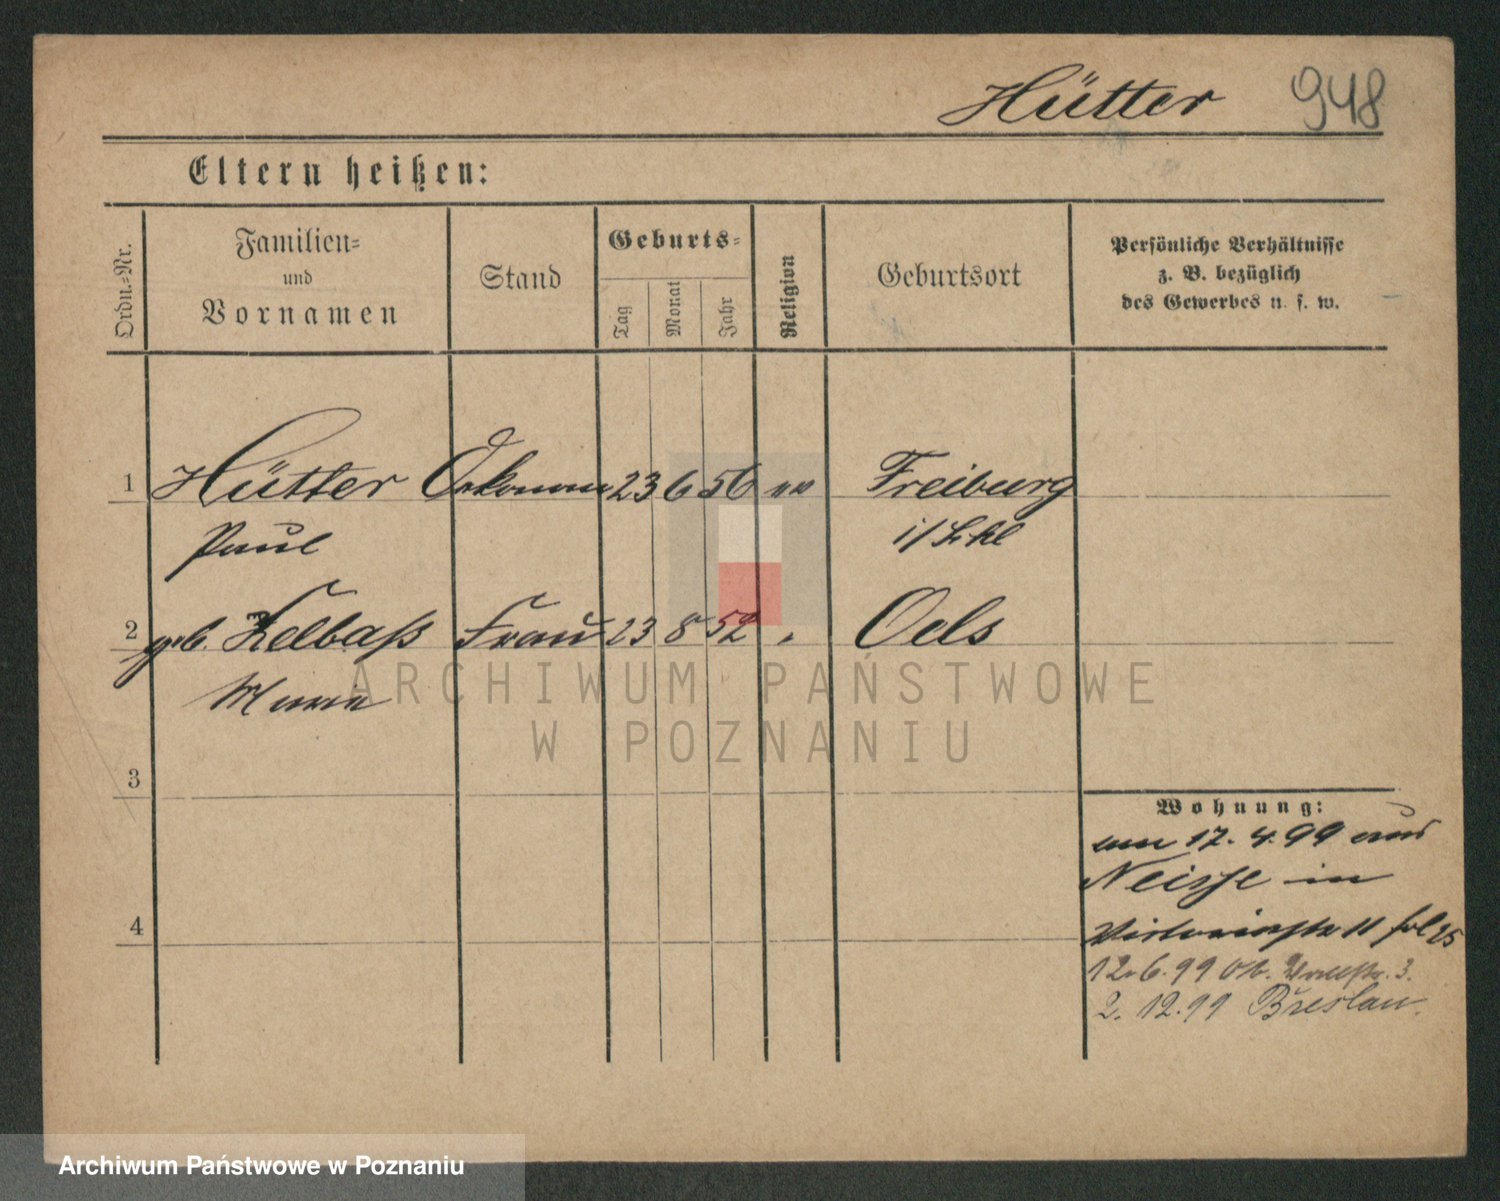 Hütter 948
Eltern heißen:
Ordn.-Nr.
Familien-
und
Vornamen
Stand
Geburts-
Tag
Monat
Jahr
Religion
Geburtsort
Persönliche Verhältnisse
z. B. bezüglich
des Gewerbes u. s. w.
1 Hütter Oekonom 23 6 56 Freiburg
Paul i/Schl
2 geb. Kelbaß Frau 23 8 52 " Oels
Marie
3
Wohnung:
am 17. 4. 99 aus
Neisse in
Victoriastr 11
4
12. 6. 99 Ob. 3.
2. 12. 99 Breslau.
ARCHIWUM PAŃSTWOWE
W POZNANIU
Archiwum Państwowe w Poznaniu